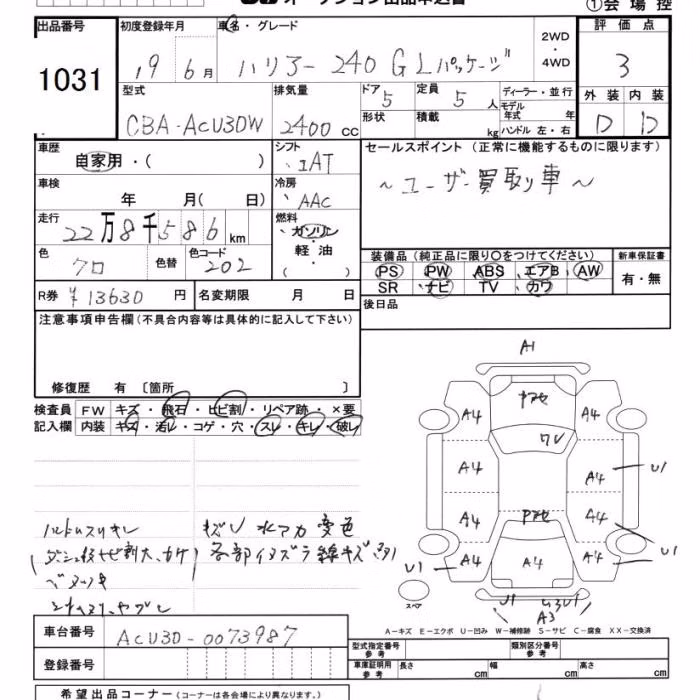 オークション出品申込書
①会場控
出品番号
1031
初度登録年月
19 6月
車名・グレード
ハリアー 240G Lパッケージ
2WD
・
4WD
評価点
3
外装 内装
D D
型式
CBA-ACU30W
排気量
2400cc
ドア
5
形状
定員
5人
積載
kg
ディーラー・並行
モデル
年式 年
ハンドル 左・右
車歴
自家用・( )
シフト
IAT
車検
年 月(日)
冷房
AAC
走行
22万8千586km
燃料
ガソリン
・
軽油
( )
色
クロ
色替
色コード
202
R券
¥13630円
名変期限 月 日
セールスポイント(正常に機能するものに限ります)
~ユーザー買取り車~
装備品(純正品に限り○をつけてください)
PS PW ABS エアB AW
SR ナビ TV カワ
新車保証書
有・無
後日品
注意事項申告欄(不具合内容等は具体的に記入して下さい)
修復歴 有〔箇所 〕
検査員
記入欄
FW キズ・飛石・ヒビ割・リペア跡・×要
内装 キズ・汚レ・コゲ・穴・スレ・キレ・破レ
キズU 水アカ 変色
各部イタズラ線キズ多
A1
A4
A4
A4
A4
A4
A4
A4
A4
A4
U1
U1
U1
U1
A3
スペア
A-キズ E-エクボ U-凹み W-補修跡 S-サビ C-腐食 XX-交換済
車台番号
ACU30-0073987
登録番号
型式指定番号
参考
類別区分番号
参考
車庫証明用
参考
長さ cm
幅 cm
高さ cm
希望出品コーナー(コーナーは各会場により異なります。)